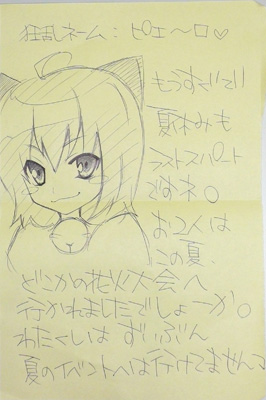 狂乱ネーム：ピエ〜ロ♡
もうすぐ
夏休みも
ラストスパート
ですネ。
お2人は
この夏、
どこかの花火大会へ
行かれましたでしょーか。
わたくしは ずいぶん
夏のイベントへは行けてません